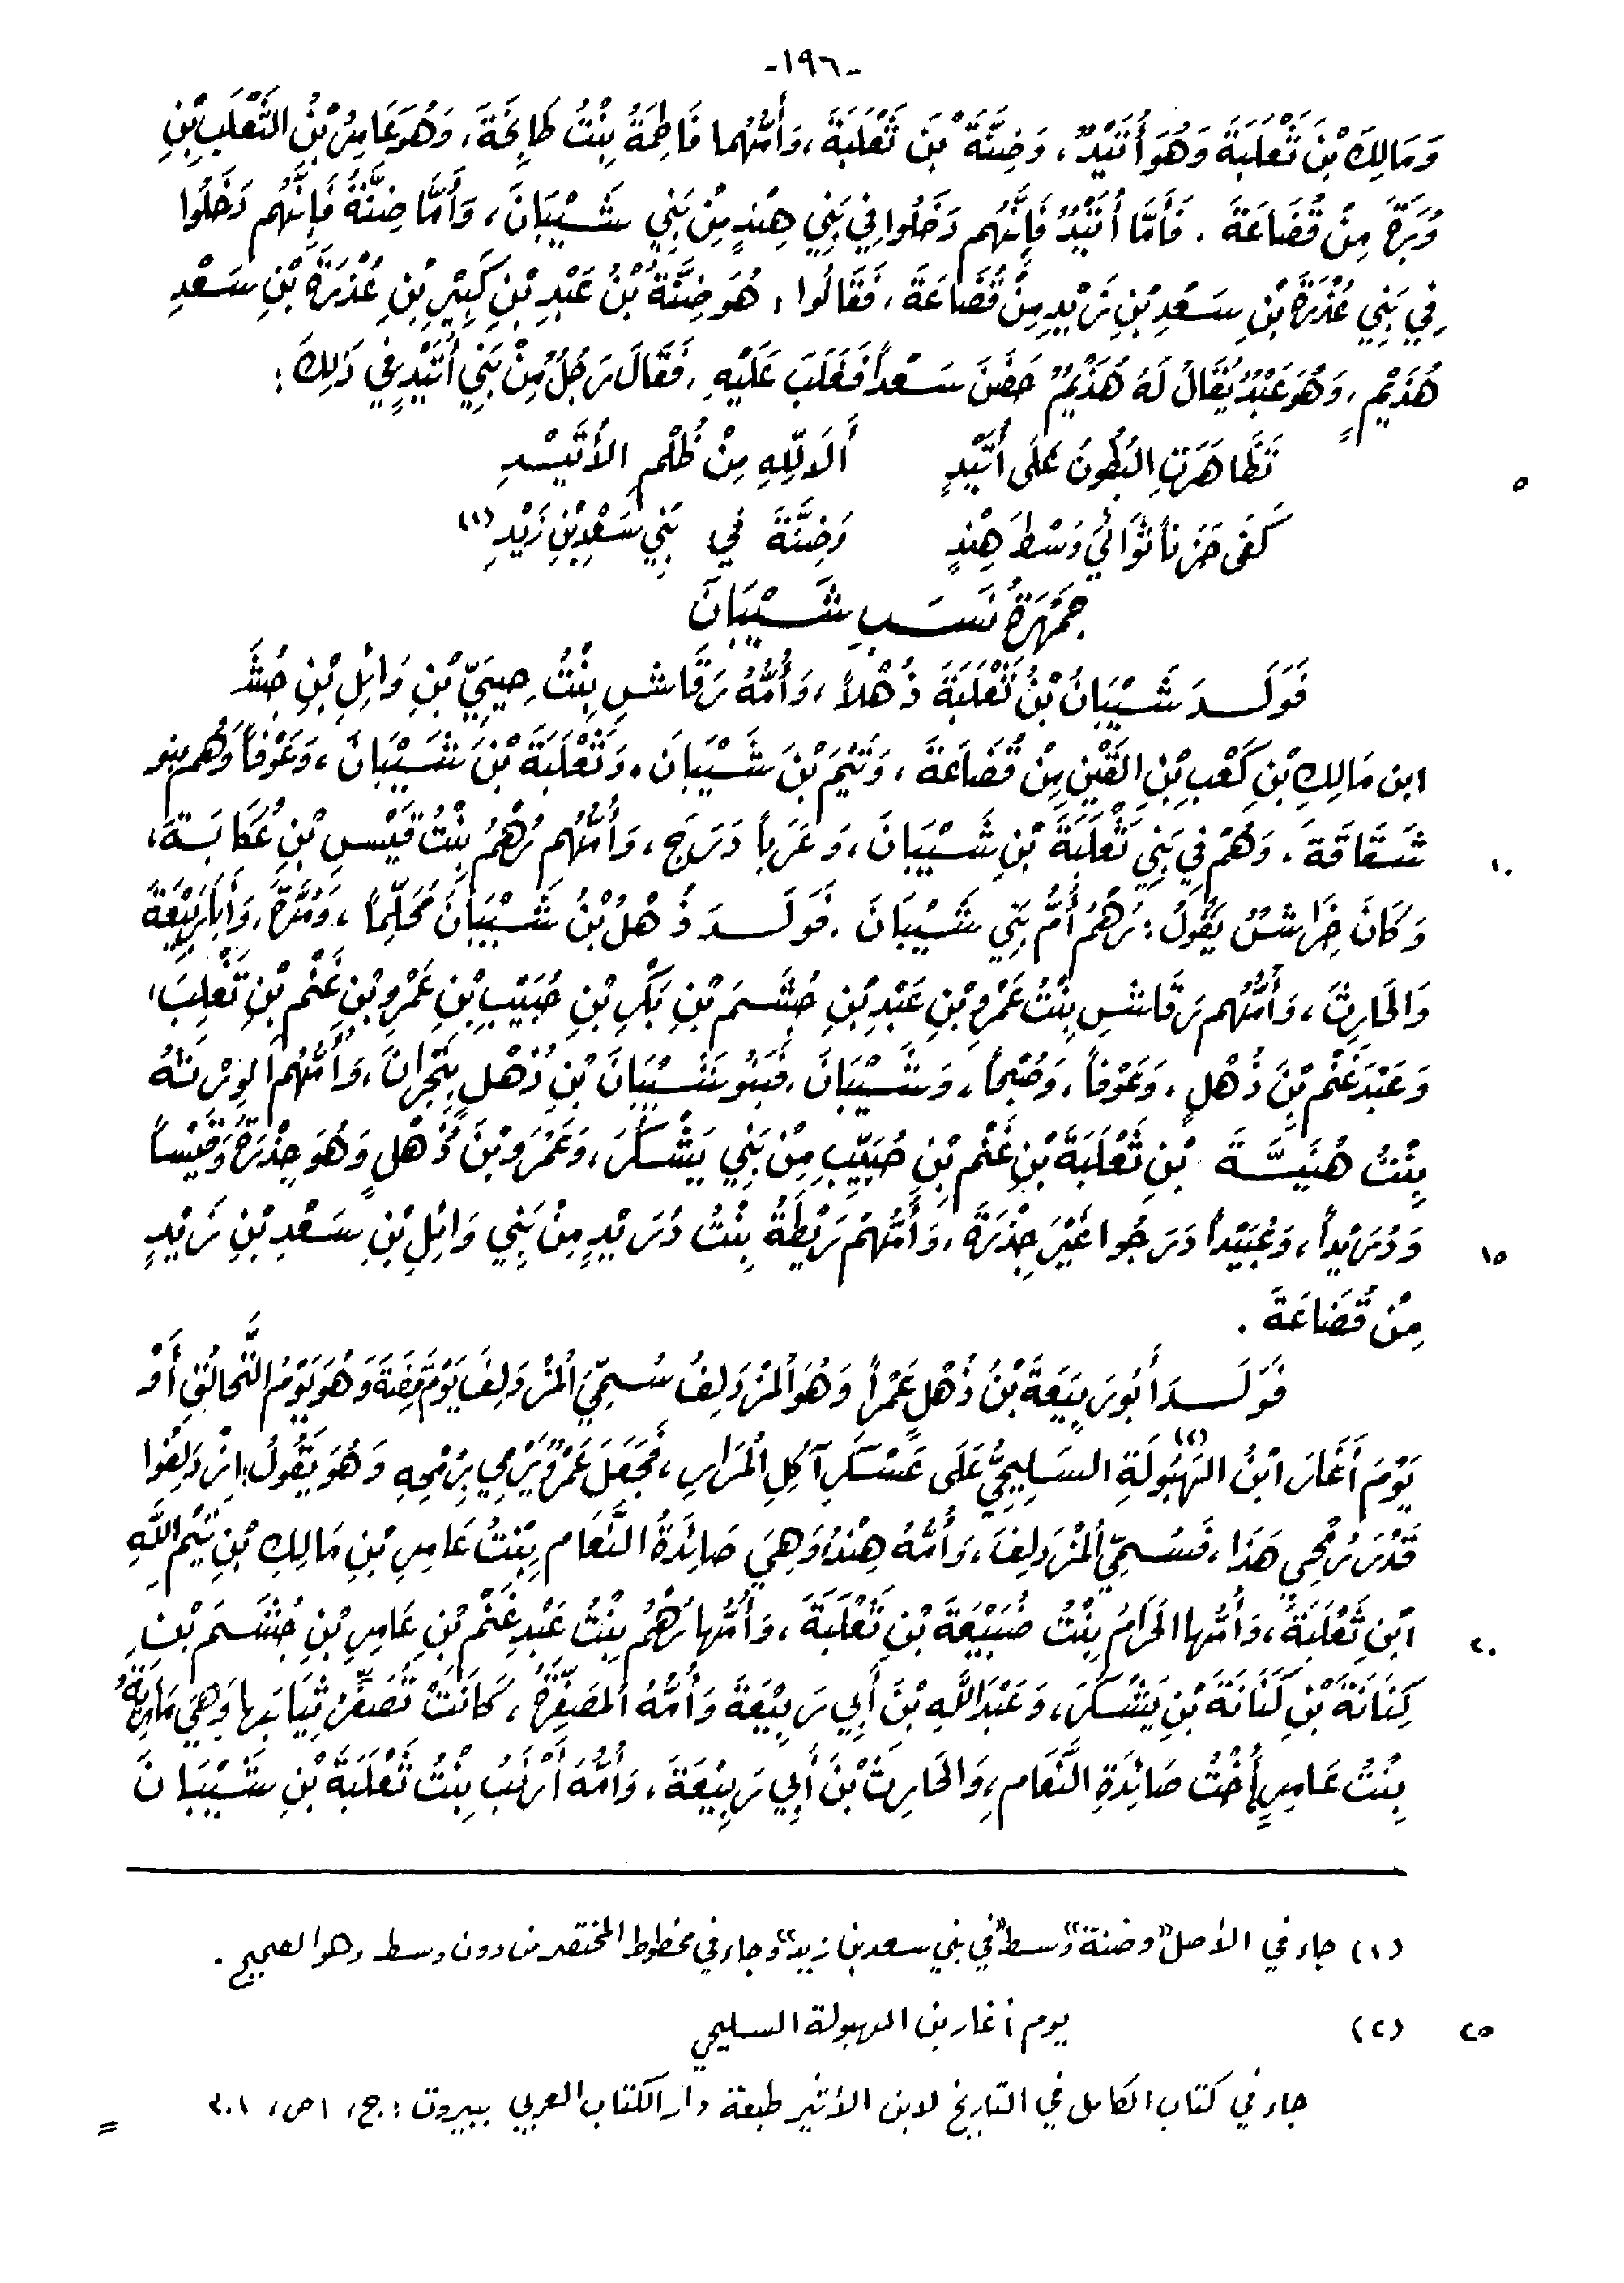 -١٩٦-
وَمَالِكَ بْنَ ثَعْلَبَةَ وَهُوَ أُتَيْدٌ، وَضِنَّةَ بْنَ ثَعْلَبَةَ، وَأُمُّهُما فَاطِمَةُ بِنْتُ طَابِخَةَ، وَهُوَ عَامِرُ بْنُ الثَّعْلَبِ بْنِ
وُبَرَةَ مِنْ قُضَاعَةَ. فَأَمَّا أُتَيْدٌ فَإِنَّهُم دَخَلُوا فِي بَنِي هِنْدٍ مِنْ بَنِي شَيْبَانَ، وَأَمَّا ضِنَّةُ فَإِنَّهُم دَخَلُوا
فِي بَنِي عُذْرَةَ بْنِ سَعْدِ بْنِ زَيْدٍ مِنْ قُضَاعَةَ، فَقَالُوا: هُوَ ضِنَّةُ بْنُ عَبْدِ بْنِ كَبِيْرِ بْنِ عُذْرَةَ بْنِ سَعْدِ
هُذَيْمٍ، وَهُوَ عَبْدٌ يُقَالُ لَهُ هُذَيْمٌ حَضَنَ سَعْداً فَغَلَبَ عَلَيْهِ، فَقَالَ رَجُلٌ مِنْ بَنِي أُتَيْدٍ فِي ذَلِكَ:
تَظَاهَرَتِ البُطُونُ عَلَى أُتَيْدٍ أَلَا لِلَّهِ مِنْ ظُلْمِ الأُتَيْدِ ٥
كَفَى حَزَناً ثَوَائِي وَسْطَ هِنْدٍ وَضِنَّةَ فِي بَنِي سَعْدِ بْنِ زَيْدِ (١)
جَمْهَرَةُ نَسَبِ شَيْبَانَ
فَوَلَدَ شَيْبَانُ بْنُ ثَعْلَبَةَ ذُهْلاً، وَأُمُّهُ رَقَاشِ بِنْتُ حِيَيِّ بْنِ وَائِلِ بْنِ جُشَمَ
ابن مَالِكِ بْنِ كَعْبِ بْنِ القَيْنِ مِنْ قُضَاعَةَ، وَتَيْمَ بْنَ شَيْبَانَ، وَثَعْلَبَةَ بْنَ شَيْبَانَ، وَعَوْفاً وَهُم بنو
شَقَاقَةَ، وَهُمْ فِي بَنِي ثَعْلَبَةَ بْنِ شَيْبَانَ، وَعَرَباً دَرَجَ، وَأُمُّهُم رُهْمُ بِنْتُ قَيْسِ بْنِ عُكَابَةَ، ١٠
وَكَانَ خِرَاشٌ يَقُولُ: رُهْمُ أُمُّ بَنِي شَيْبَانَ. فَوَلَدَ ذُهْلُ بْنُ شَيْبَانَ مُحَلِّماً، وَمُرَّةَ، وَأَبَا رَبِيْعَةَ
وَالحَارِثَ، وَأُمُّهُم رَقَاشِ بِنْتُ عَمْرِو بْنِ عَبْدِ بْنِ جُشَمَ بْنِ بَكْرِ بْنِ حُبَيْبِ بْنِ عَمْرِو بْنِ غَنْمِ بْنِ تَغْلِبَ،
وَعَبْدَ غَنْمِ بْنَ ذُهْلٍ، وَعَوْفاً، وَصُبْحاً، وَشَيْبَانَ، فَبَنُو شَيْبَانَ بْنِ ذُهْلٍ بِنَجْرَانَ، وَأُمُّهُم الوِرْثَةُ
بِنْتُ هُنَيَّةَ بْنِ ثَعْلَبَةَ بْنِ غَنْمِ بْنِ حُبَيِّبٍ مِنْ بَنِي يَشْكُرَ، وَعَمْرَو بْنَ ذُهْلٍ وَهُوَ جِذْرَةُ وَقَيْساً
وَدُرَيْداً، وَعُبَيْداً دَرَجُوا غَيْرَ جِذْرَةَ، وَأُمُّهُمْ رَيْطَةُ بِنْتُ دُرَيْدٍ مِنْ بَنِي وَائِلِ بْنِ سَعْدِ بْنِ زَيْدٍ ١٥
مِنْ قُضَاعَةَ.
فَوَلَدَ أَبُو رَبِيْعَةَ بْنُ ذُهْلٍ عَمْراً وَهُوَ المُزْدَلِفُ سُمِّيَ المُزْدَلِفَ يَوْمَ قِضَةَ وَهُوَ يَوْمُ التَّحَالُقِ أَوْ
يَوْمَ أَغَارَ ابْنُ الهَبُولَةِ (٢) السَلِيْحِيُّ عَلَى عَسْكَرِ آكِلِ المُرَارِ، فَجَعَلَ عَمْرٌو يَرْمِي بِرُمْحِهِ وَهُوَ يَقُولُ: ازْدَلِفُوا
قَدْرَ رُمْحِي هَذَا، فَسُمِّيَ المُزْدَلِفَ، وَأُمُّهُ هِنْدُ وَهِيَ صَائِدَةُ النَّعَامِ بِنْتُ عَامِرِ بْنِ مَالِكِ بْنِ تَيْمِ اللَّهِ
ابْنِ ثَعْلَبَةَ، وَأُمُّها الحَرَامُ بِنْتُ ضُبَيْعَةَ بْنِ ثَعْلَبَةَ، وَأُمُّها رُهْمُ بِنْتُ عَبْدِ غَنْمِ بْنِ عَامِرِ بْنِ جُشَمَ بْنِ ٢٠
كِنَانَةَ بْنِ كِنَانَةَ بْنِ يَشْكُرَ، وَعَبْدَ اللَّهِ بْنَ أَبِي رَبِيْعَةَ وَأُمُّهُ المُصَفِّرَةُ، كَانَتْ تُصَفِّرُ ثِيَابَها وَهِيَ مَارِيَةُ
بِنْتُ عَامِرٍ أُخْتُ صَائِدَةِ النَّعَامِ، وَالحَارِثَ بْنَ أَبِي رَبِيْعَةَ، وَأُمُّهُ أَرْنَبُ بِنْتُ ثَعْلَبَةَ بْنِ شَيْبَانَ
(١) جاء في الأصل «وضنة» وسط «في بني سعد بن زيد» وجاء في مخطوط المختصر من دون وسط وهو الصحيح.
(٢) يوم أغار بن الهبولة السليحي ٢٥
جاء في كتاب الكامل في التاريخ لابن الأثير طبعة دار الكتاب العربي ببيروت: ج، ١ ص، ٣٠١ =